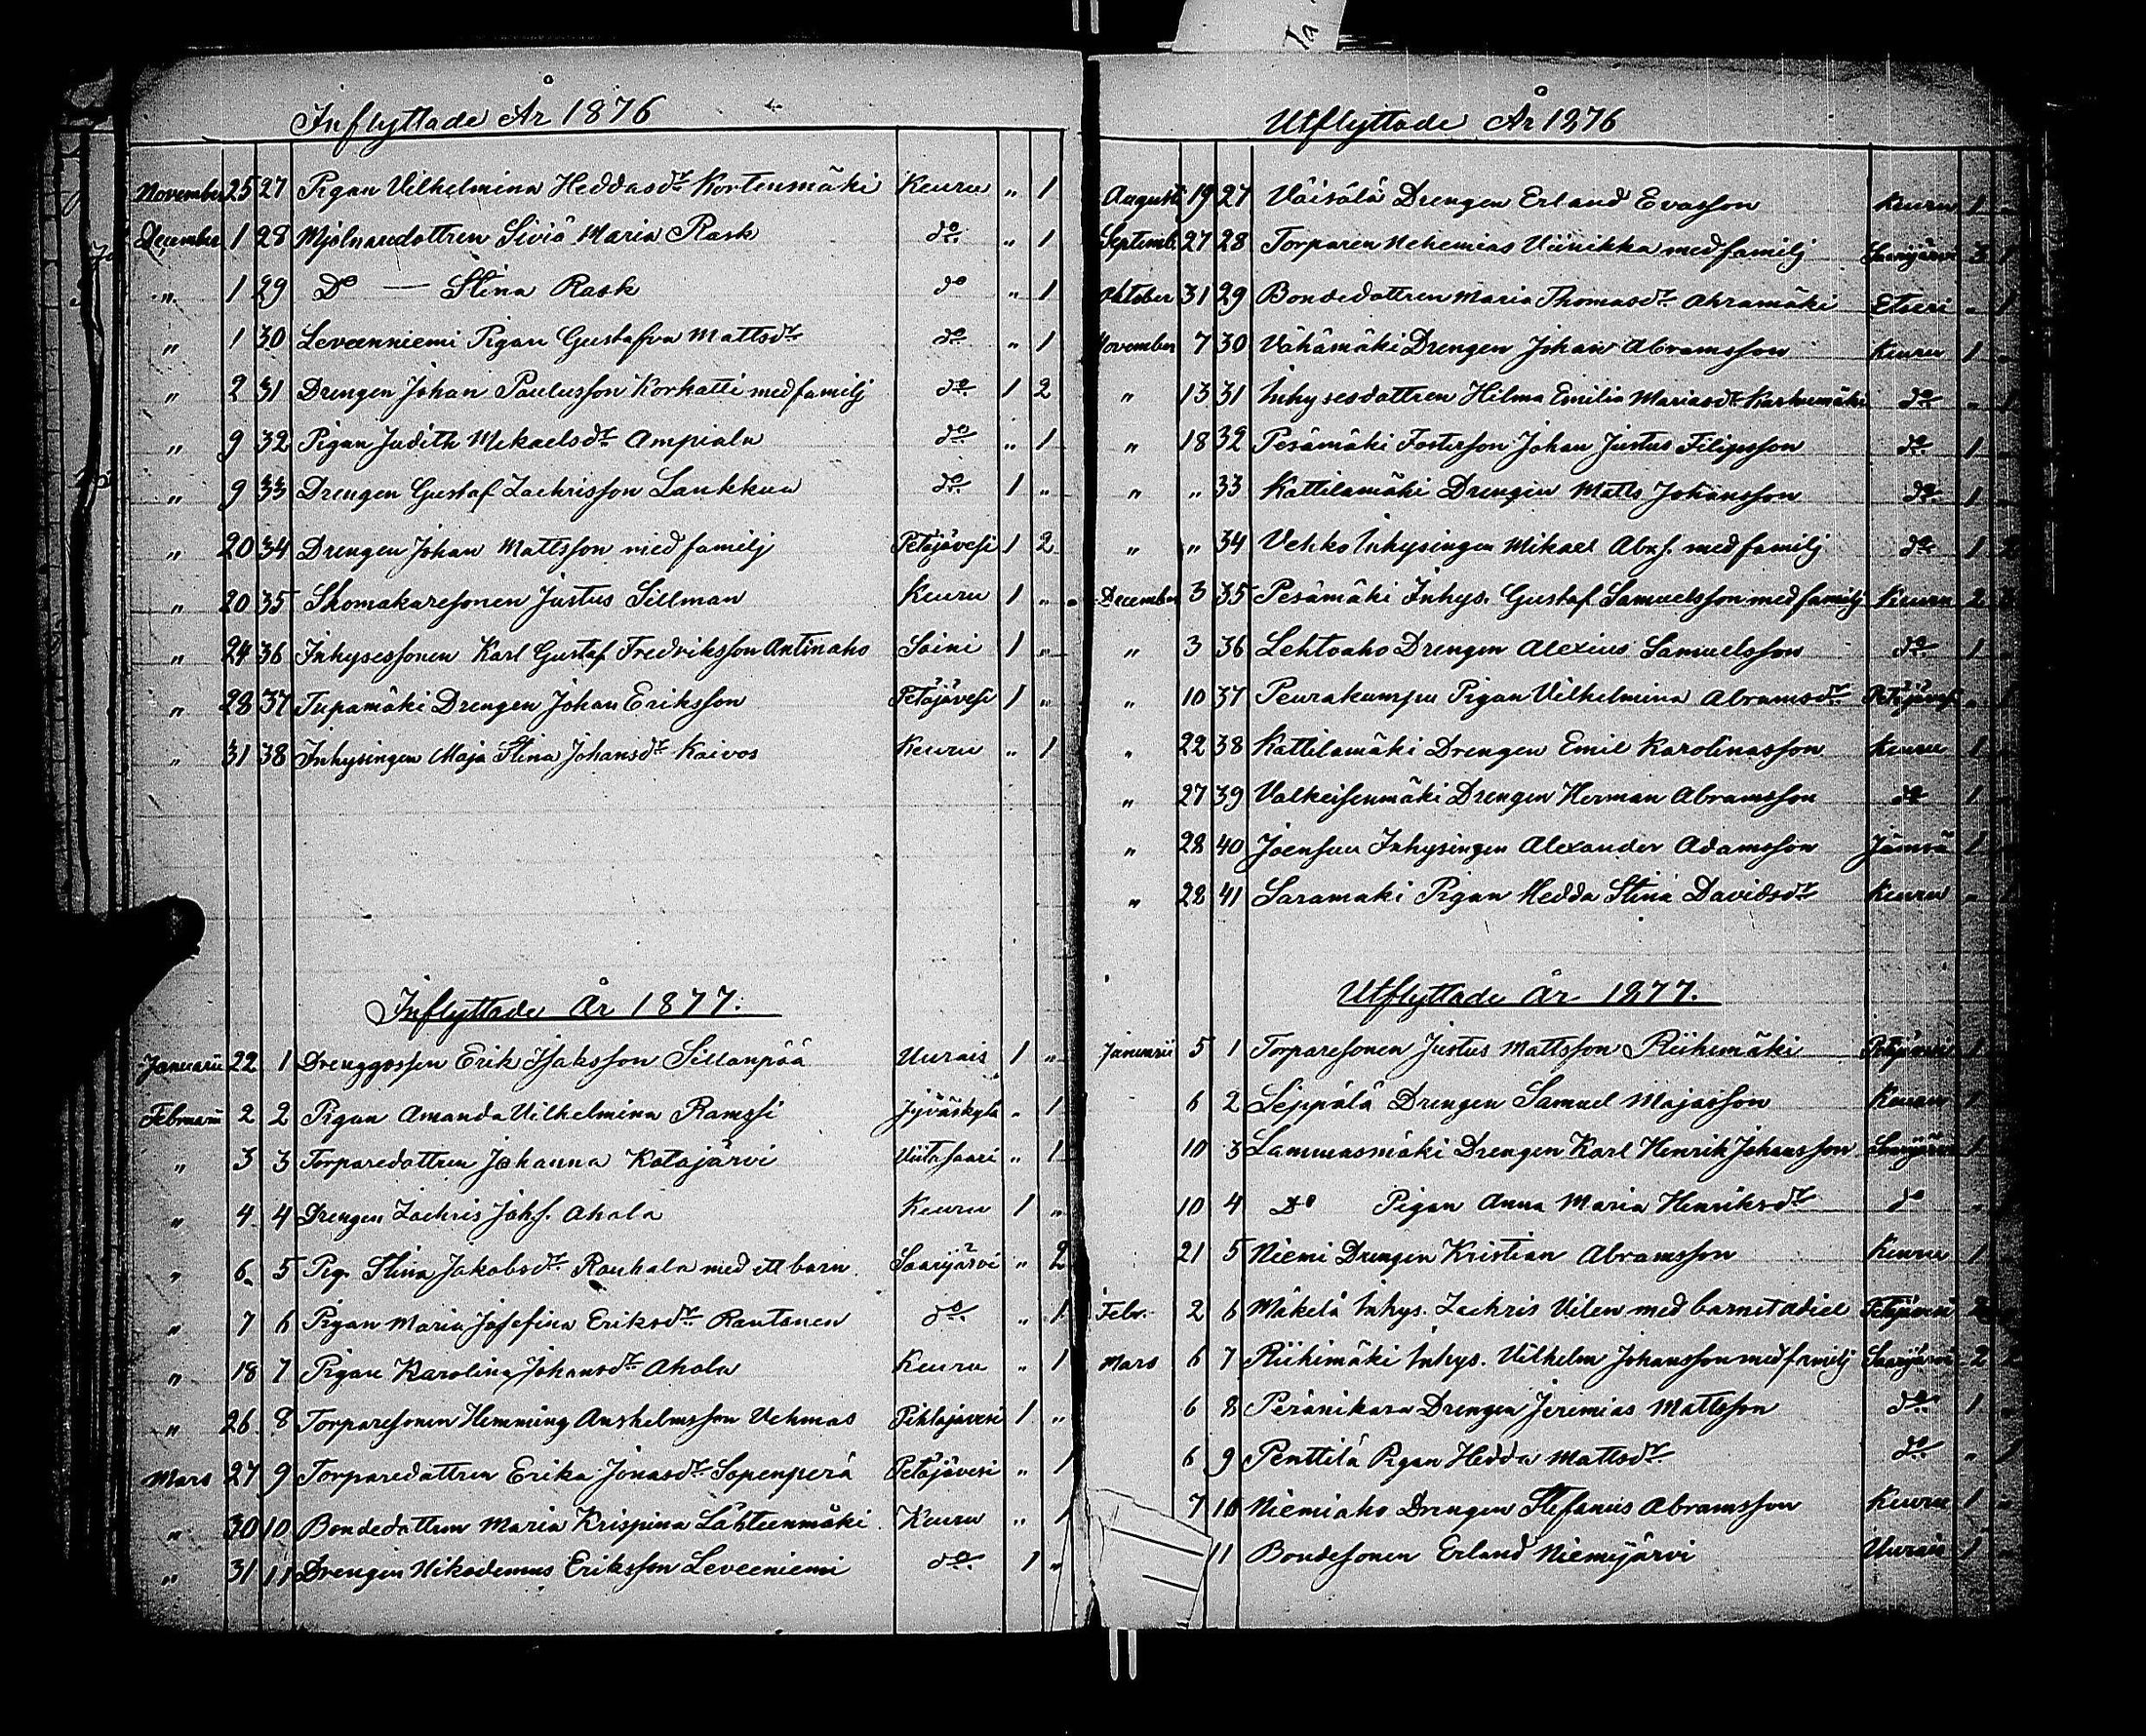 Inflyttade År 1876
November 25 27 Pigan Vilhelmina Heddasdr Kortensmäki Keuru " 1
December 1 28 Mjölnaredottren Siviä Maria Rask do " 1
" 1 29 Do — Stina Rask do " 1
" 1 30 Leveenniemi Pigan Gustafva Mattsdr do " 1
" 2 31 Drengen Johan Paulusson Korkatti med familj do 1 2
" 9 32 Pigan Judith Mikaelsdr Ampiala do " 1
" 9 33 Drengen Gustaf Zachrisson Laukkua do 1 "
" 20 34 Drengen Johan Mattsson med familj Petäjävesi 1 2
" 20 35 Skomakaresonen Justus Sillman Keuru 1 "
" 24 36 Inhysessonen Karl Gustaf Fredriksson Antinaho Soini 1 "
" 28 37 Tupamäki Drengen Johan Eriksson Petäjävesi 1 "
" 31 38 Inhysingen Maja Stina Johansdr Kaivos Keuru " 1
Inflyttade År 1877.
Januarii 22 1 Drenggossen Erik Isaksson Sillanpää Uurais 1 "
Februarii 2 2 Pigan Amanda Vilhelmina Ramssi Jyväskylä " 1
" 3 3 Torparedottren Johanna Katajärvi Viitasaari " 1
" 4 4 Drengen Zachris Johs. Ahola Keuru 1 "
" 6 5 Pig. Stina Jakobsdr Rauhala med ett barn Saarijärvi " 2
" 7 6 Pigan Maria Josefina Eriksdr Rautanen do " 1
" 18 7 Pigan Karolina Johansdr Ahola Keuru " 1
" 26 8 Torparesonen Hemming Anshelmsson Vehmas Pihlajavesi 1 "
Mars 27 9 Torparedottren Erika Jonasdr Sopenperä Petäjävesi " 1
" 30 10 Bondedottren Maria Krispina Lähteenmäki Keuru " 1
" 31 11 Drengen Nikodemus Eriksson Leveeniemi do 1 "
Utflyttade År 1876
Augusti 19 27 Väisälä Drengen Erland Evasson Keuru 1 "
Septemb. 27 28 Torparen Nehemias Viinikka med familj Saarijärvi 3 1
Oktober 31 29 Bondedottren Maria Thomasdr Ahramäki Etseri " 1
November 7 30 Vähämäki Drengen Johan Abramsson Keuru 1 "
" 13 31 Inhysesdottren Hilma Emilia Mariasdr Karhumäki do " 1
" 18 32 Pesämäki Fosterson Johan Justus Filipsson do 1
" " 33 Kattilamäki Drengen Matts Johansson do 1
" " 34 Vehko Inhysingen Mikael Abrs. med familj do 1 2
December 3 35 Pesämäki Inhys. Gustaf Samuelsson med familj Keuru 2 3
" 3 36 Lehtoaho Drengen Alexius Samuelsson do 1 "
" 10 37 Peurakumpu Pigan Vilhelmina Abramsdr " 1
" 22 38 Kattilamäki Drengen Emil Karolinasson Keuru 1
" 27 39 Valkeisenmäki Drengen Herman Abramsson do 1
" 28 40 Joensuu Inhysingen Alexander Adamsson Jämsä 1
" 28 41 Saramaki Pigan Hedda Stina Davidsdr Keuru "
Utflyttade År 1877.
Januarii 5 1 Torparesonen Justus Mattsson Riihimäki Petäjävesi 1
6 2 Leppälä Drengen Samuel Majasson Keuru 1
10 3 Lammasmäki Drengen Karl Henrik Johansson Saarijärvi 1
10 4 Do Pigan Anna Maria Henriksdr do "
21 5 Niemi Drengen Kristian Abramsson Keuru 1
Febr. 2 6 Mäkelä Inhys. Zachris Vilen med barnet Adiel Petäjävesi 2
Mars 6 7 Riihimäki Inhys. Vilhelm Johansson med familj Saarijärvi 2
6 8 Peränikara Drengen Jeremias Mattsson do 1 "
6 9 Penttilä Pigan Hedda Mattsdr do " 1
7 10 Niemiaho Drengen Stefanus Abramsson Keuru 1 "
11 Bondesonen Erland Niemijärvi Uurais 1 "